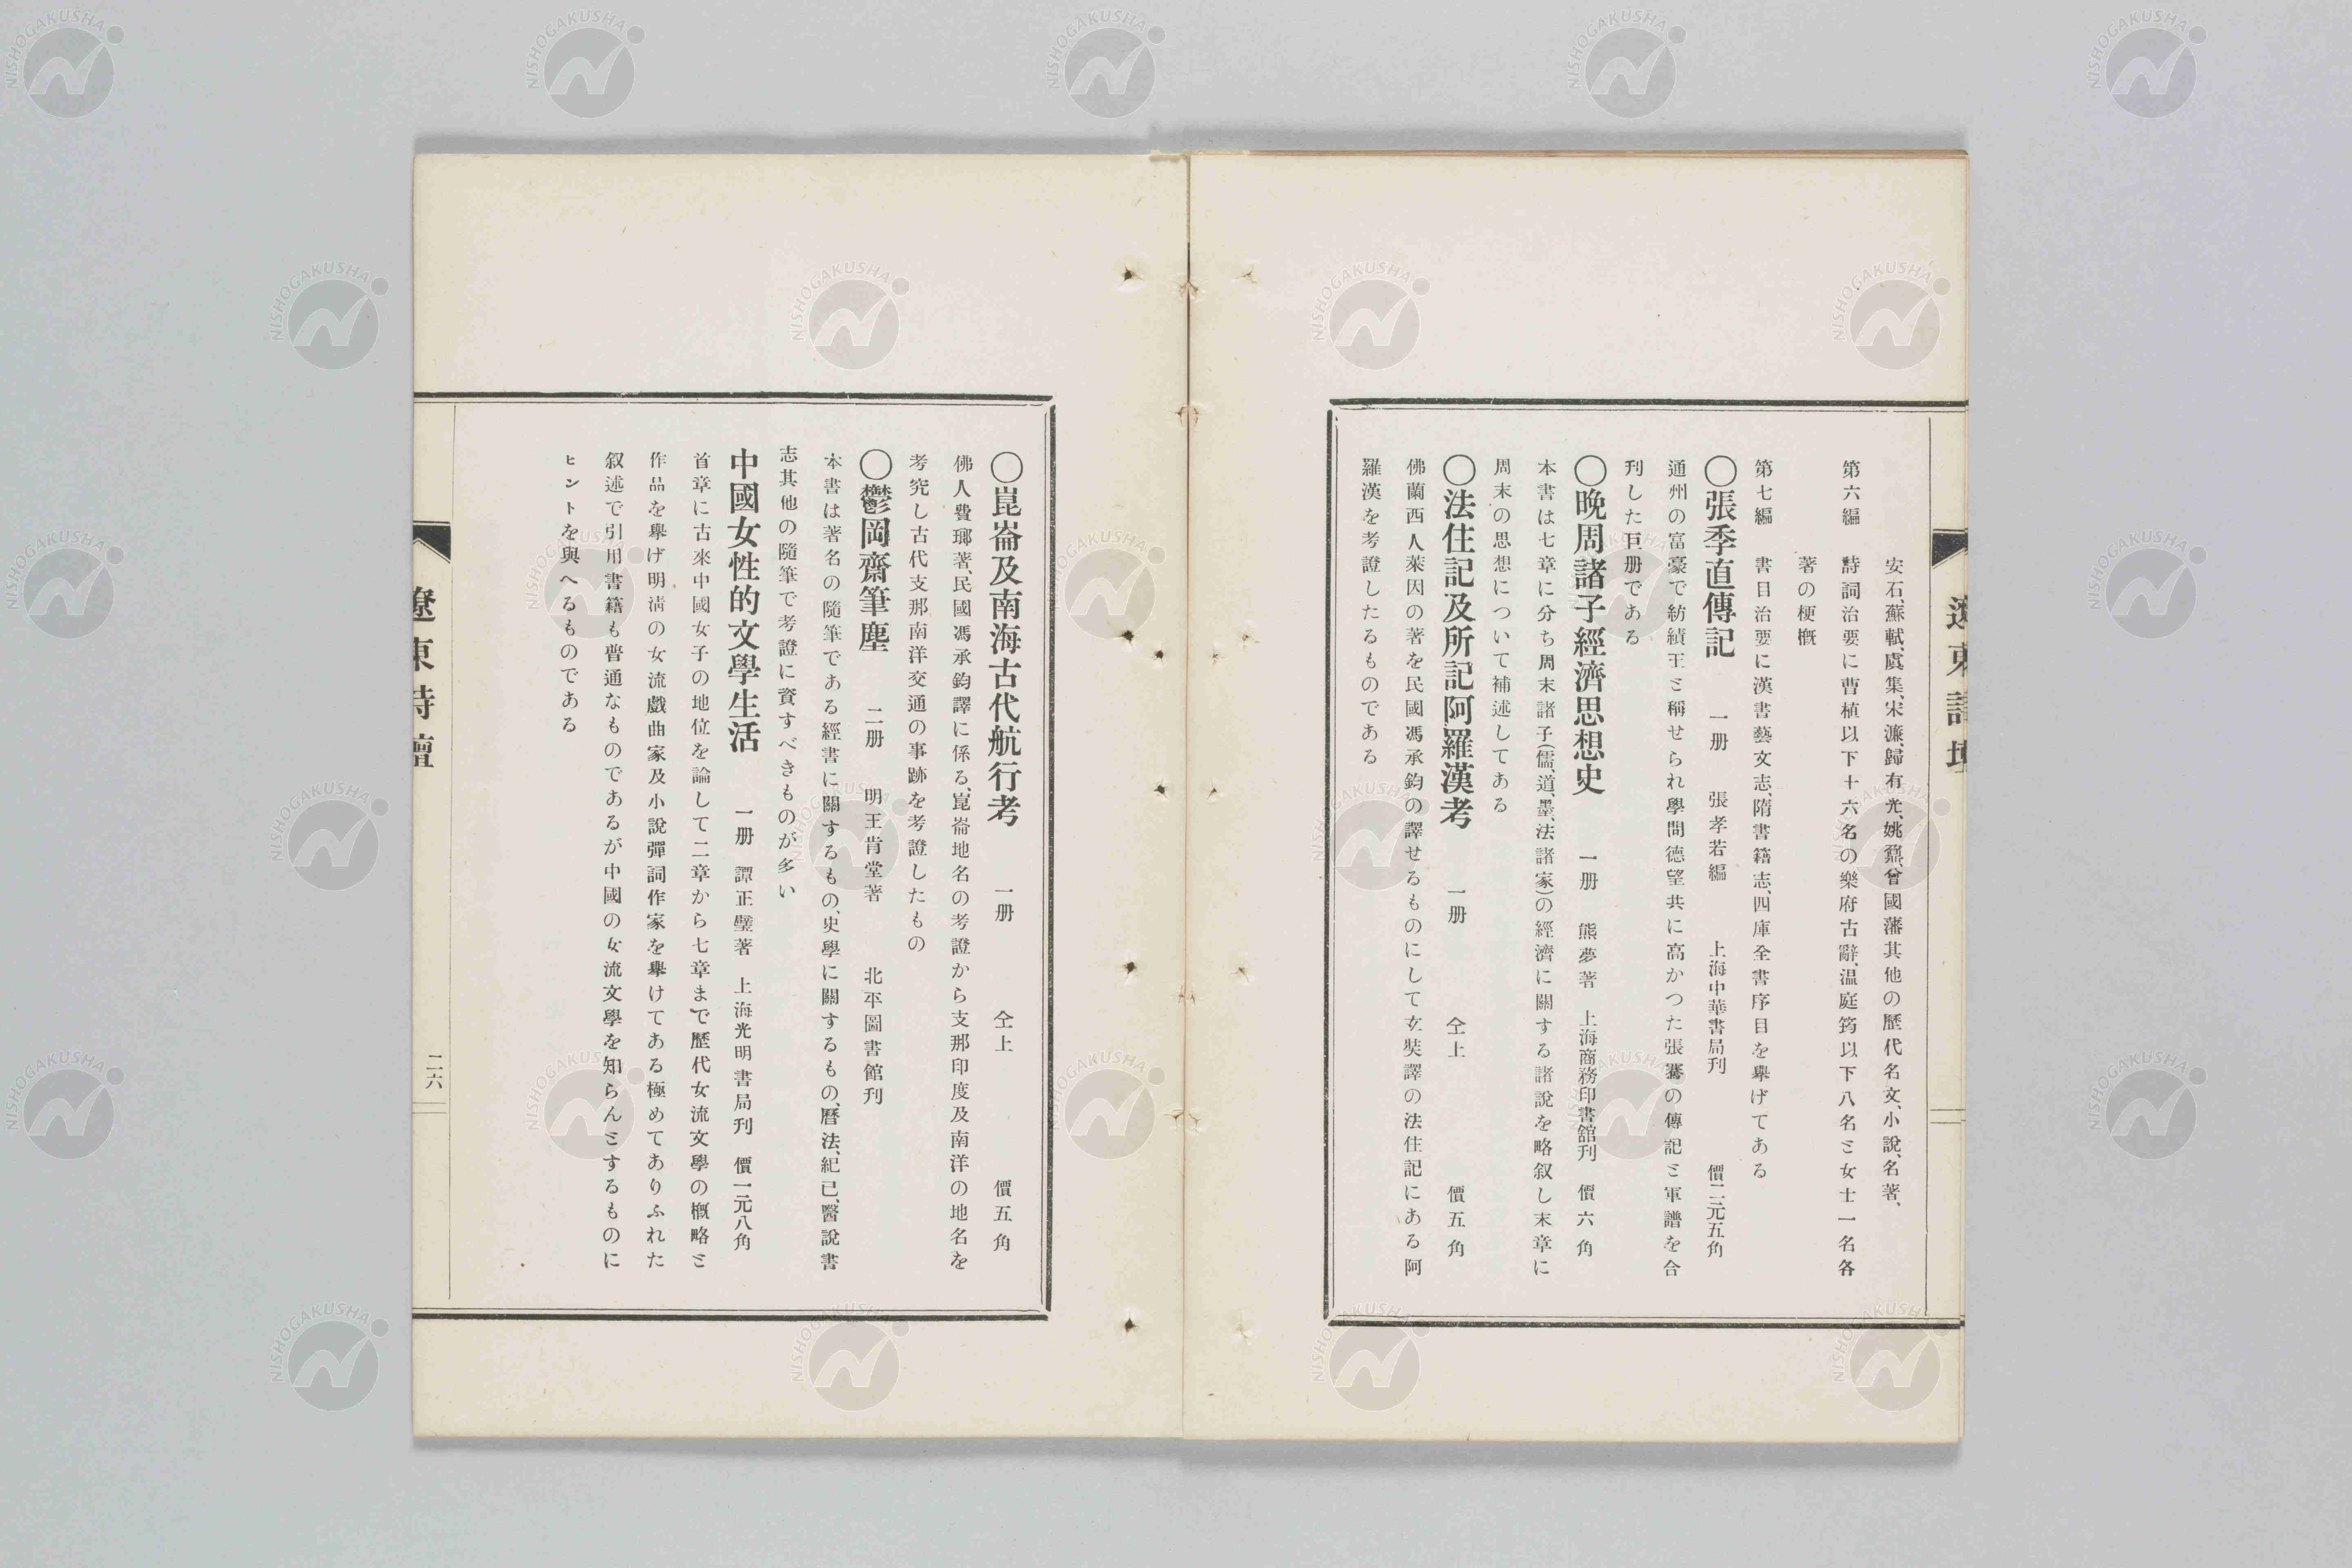 安石、蘇軾、虞集、宋濂、歸有光、姚鼐、曾國藩其他の歷代名文、小說、名著、
第六編　詩詞治要に曹植以下十六名の樂府古辭、温庭筠以下八名と女士一名各
著の梗槪
第七編　書目治要に漢書藝文志、隋書籍志、四庫全書序目を擧げてある
〇張季直傳記　一册　張孝若編　上海中華書局刊　價二元五角
通州の富豪で紡績王と稱せられ學問德望共に高かつた張謇の傳記と軍譜を合
刊した巨册である
〇晚周諸子經濟思想史　一册　熊夢著　上海商務印書舘刊　價六角
本書は七章に分ち周末諸子(儒、道、墨、法諸家)の經濟に關する諸說を略叙し末章に
周末の思想について補述してある
〇法住記及所記阿羅漢考　一册　仝上　價五角
佛蘭西人萊因の著を民國馮承鈞の譯せるものにして玄奘譯の法住記にある阿
羅漢を考證したるものである
〇崑崙及南海古代航行考　一册　仝上　價五角
佛人費瑯著、民國馮承鈞譯に係る、崑崙地名の考證から支那印度及南洋の地名を
考究し古代支那南洋交通の事跡を考證したもの
〇鬱岡齋筆塵　二册　明王肯堂著　北平圖書館刊
本書は著名の隨筆である經書に關するもの、史學に關するもの、曆法、紀已、醫說書
志其他の隨筆で考證に資すべきものが多い
中國女性的文學生活　一册　譚正璧著　上海光明書局刊　價一元八角
首章に古來中國女子の地位を論して二章から七章まで歷代女流文學の槪略と
作品を擧げ明清の女流戲曲家及小說彈詞作家を擧けてある極めてありふれた
叙述で引用書籍も普通なものであるが中國の女流文學を知らんとするものに
ヒントを與へるものである
遼東詩壇
二六
NISHOGAKUSHA